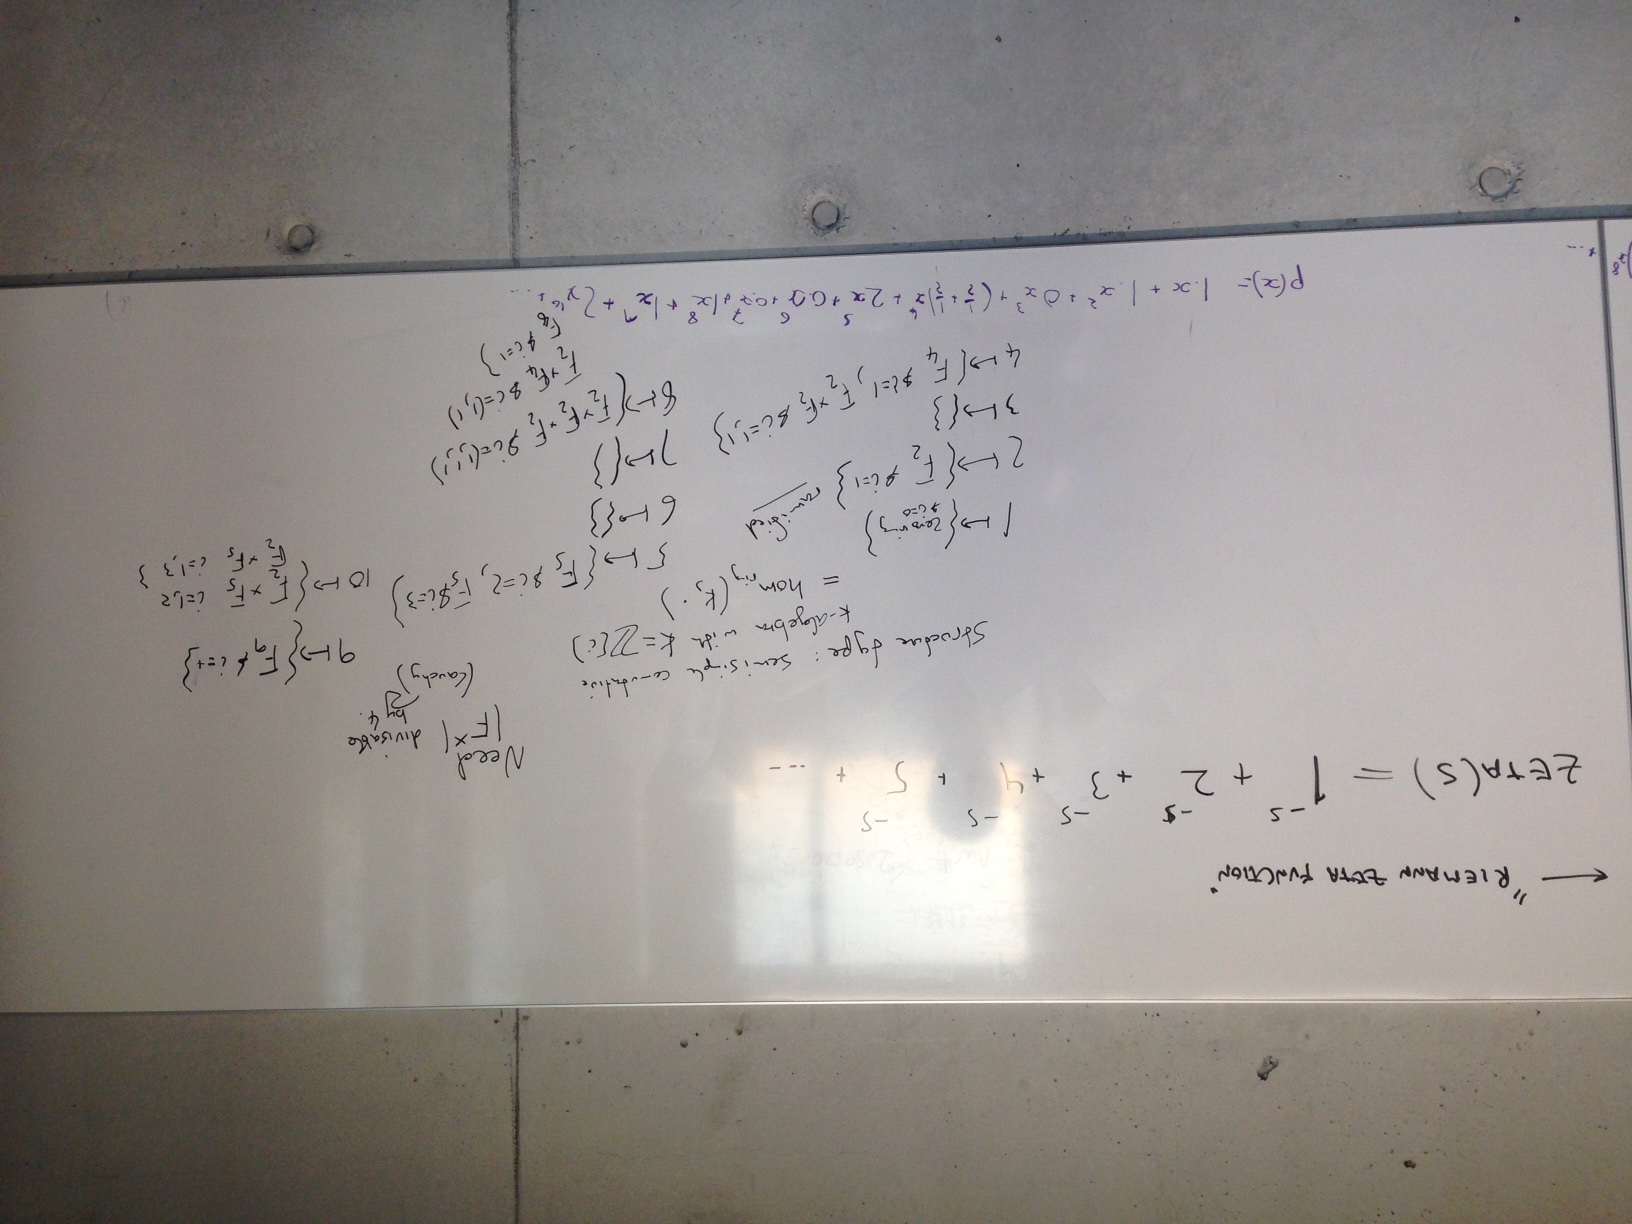 ← "RIEMANN ZETA FUNCTION"
ZETA(S) = 1^{-s} + 2^{-s} + 3^{-s} + 4^{-s} + 5^{-s} + ...
Need
|F^×| divisable
by 4.
(Cauchy)
Structure type: semisimple
k-algebra with k = ℤ[i]
= hom_{ring}(k, ·)
1 ↦ {zero ring
& i=0}
2 ↦ {F_2 & i=1} ramified
3 ↦ {}
4 ↦ {F_4 & i=1, F_2×F_2 & i=1,1}
5 ↦ {F_5 & i=2, F_5 & i=3}
6 ↦ {}
7 ↦ {}
8 ↦ {F_2×F_2×F_2 & i=(1,1,1)
F_2×F_4 & i=(1,1)
& i=1}
9 ↦ {F_9 & }
10 ↦ {F_2×F_5 i=1,2
F_2×F_5 i=1,3 }
p(x)= 1.x + 1.x^2 + 0x^3 + (1/2+1/2)x^4 + 2x^5 + 0.x^6 + 0x^7 + 1x^8 + 1x^9 + 2x^{10} + ...
)x^8 + ...